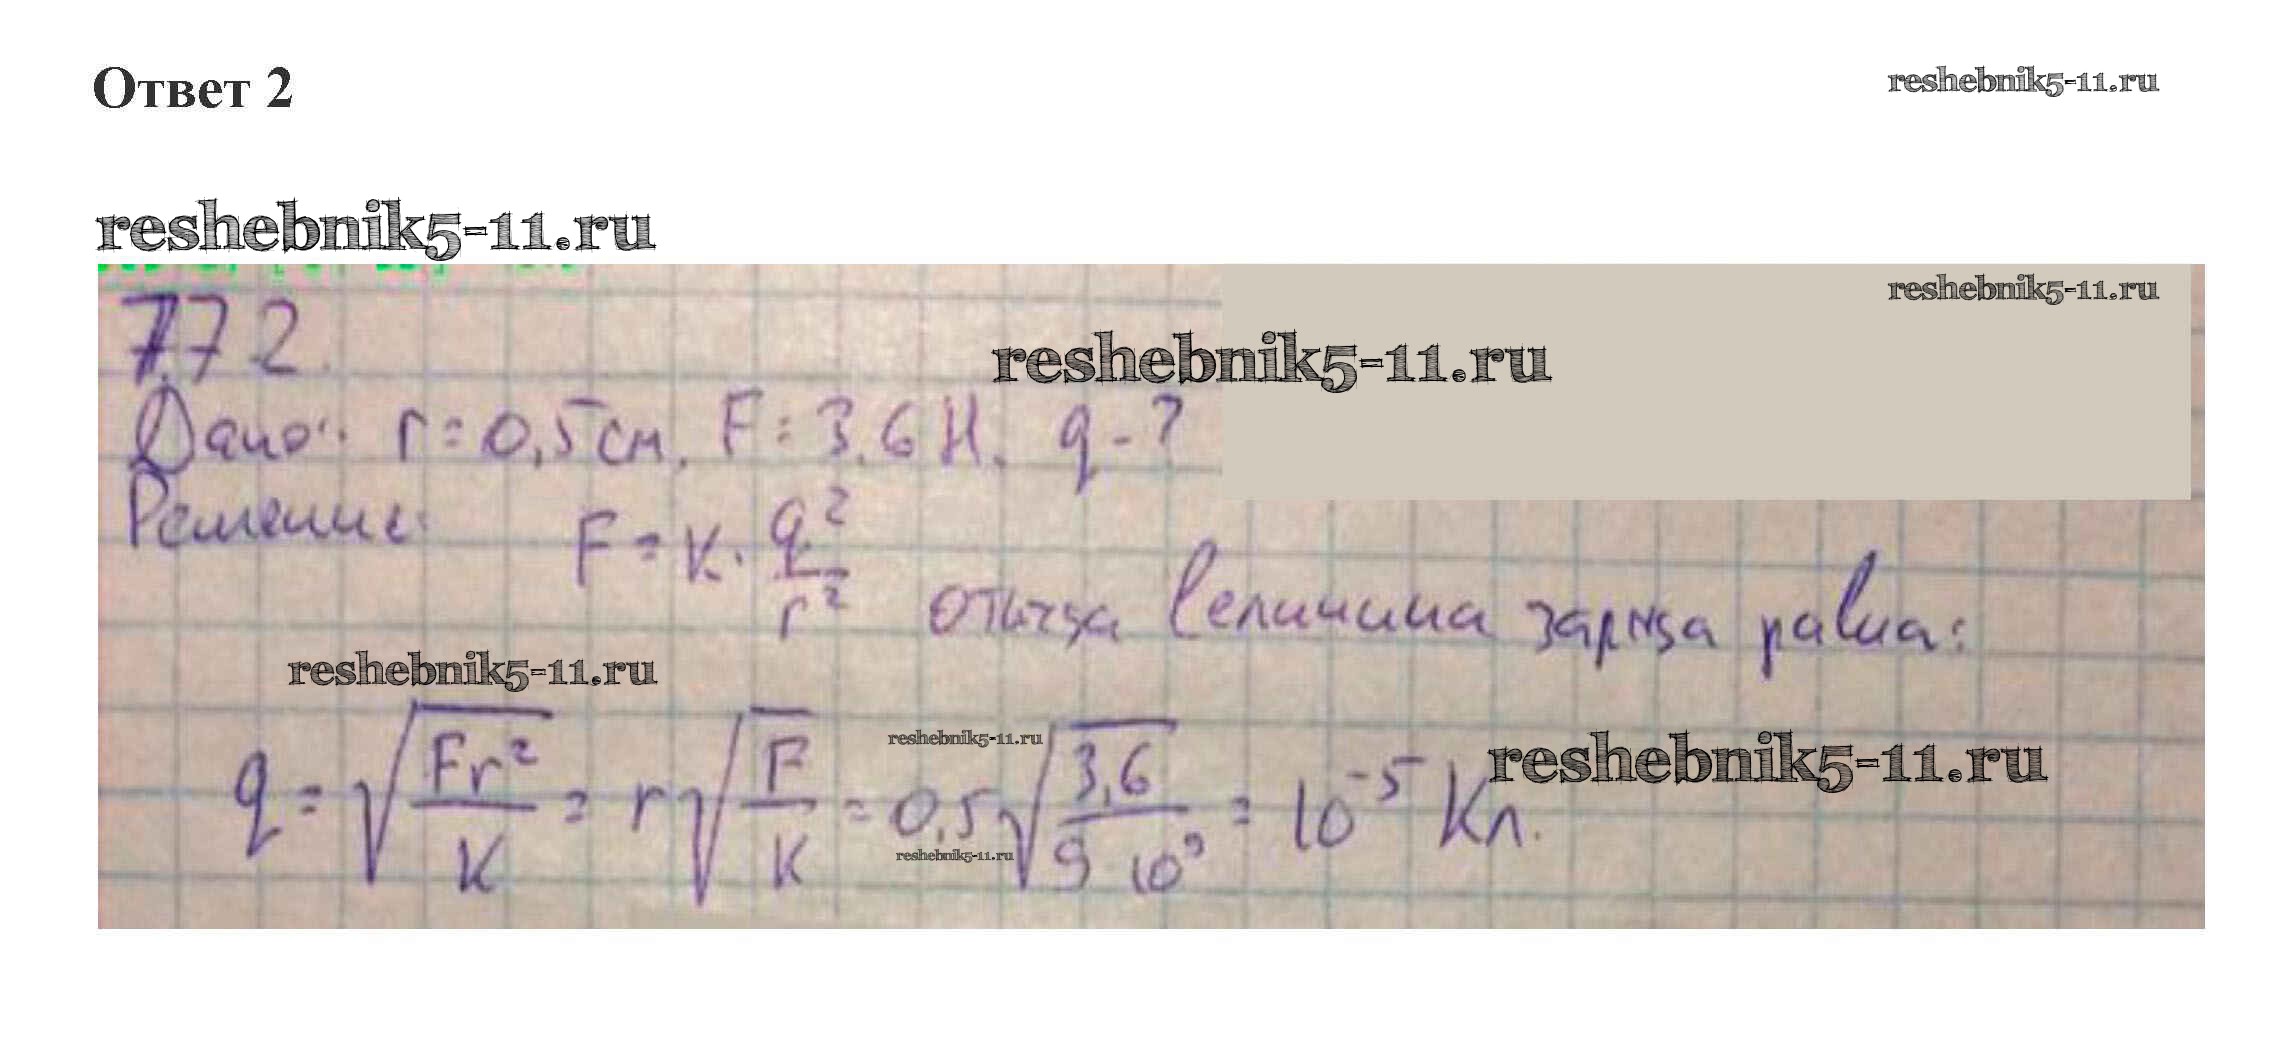 Ответ 2
reshebnik5-11.ru
reshebnik5-11.ru
reshebnik5-11.ru
772.
reshebnik5-11.ru
Дано: r = 0,5 см, F = 3,6 Н. q - ?
Решение: F = k · q² / r² отсюда величина заряда равна:
reshebnik5-11.ru
reshebnik5-11.ru
reshebnik5-11.ru
q = √(Fr² / k) = r√(F / k) = 0,5√(3,6 / 9 10⁹) = 10⁻⁵ Кл.
reshebnik5-11.ru